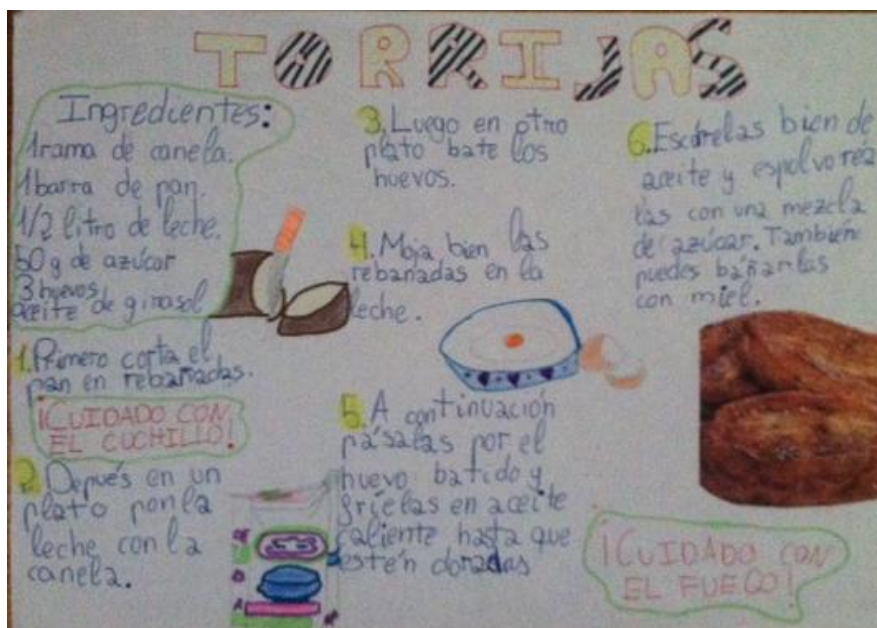 TORRIJAS
Ingredientes:
1 rama de canela.
1 barra de pan.
1/2 litro de leche.
50 g de azúcar
3 huevos
aceite de girasol
1. Primero corta el
pan en rebanadas.
¡CUIDADO CON
EL CUCHILLO!
2. Depués en un
plato pon la
leche con la
canela.
3. Luego en otro
plato bate los
huevos.
4. Moja bien las
rebanadas en la
leche.
5. A continuación
pásalas por el
huevo batido y
fríelas en aceite
caliente hasta que
estén doradas
6. Escúrrelas bien de
aceite y espolvoréa
las con una mezcla
de azúcar. También
puedes bañarlas
con miel.
¡CUIDADO CON
EL FUEGO!